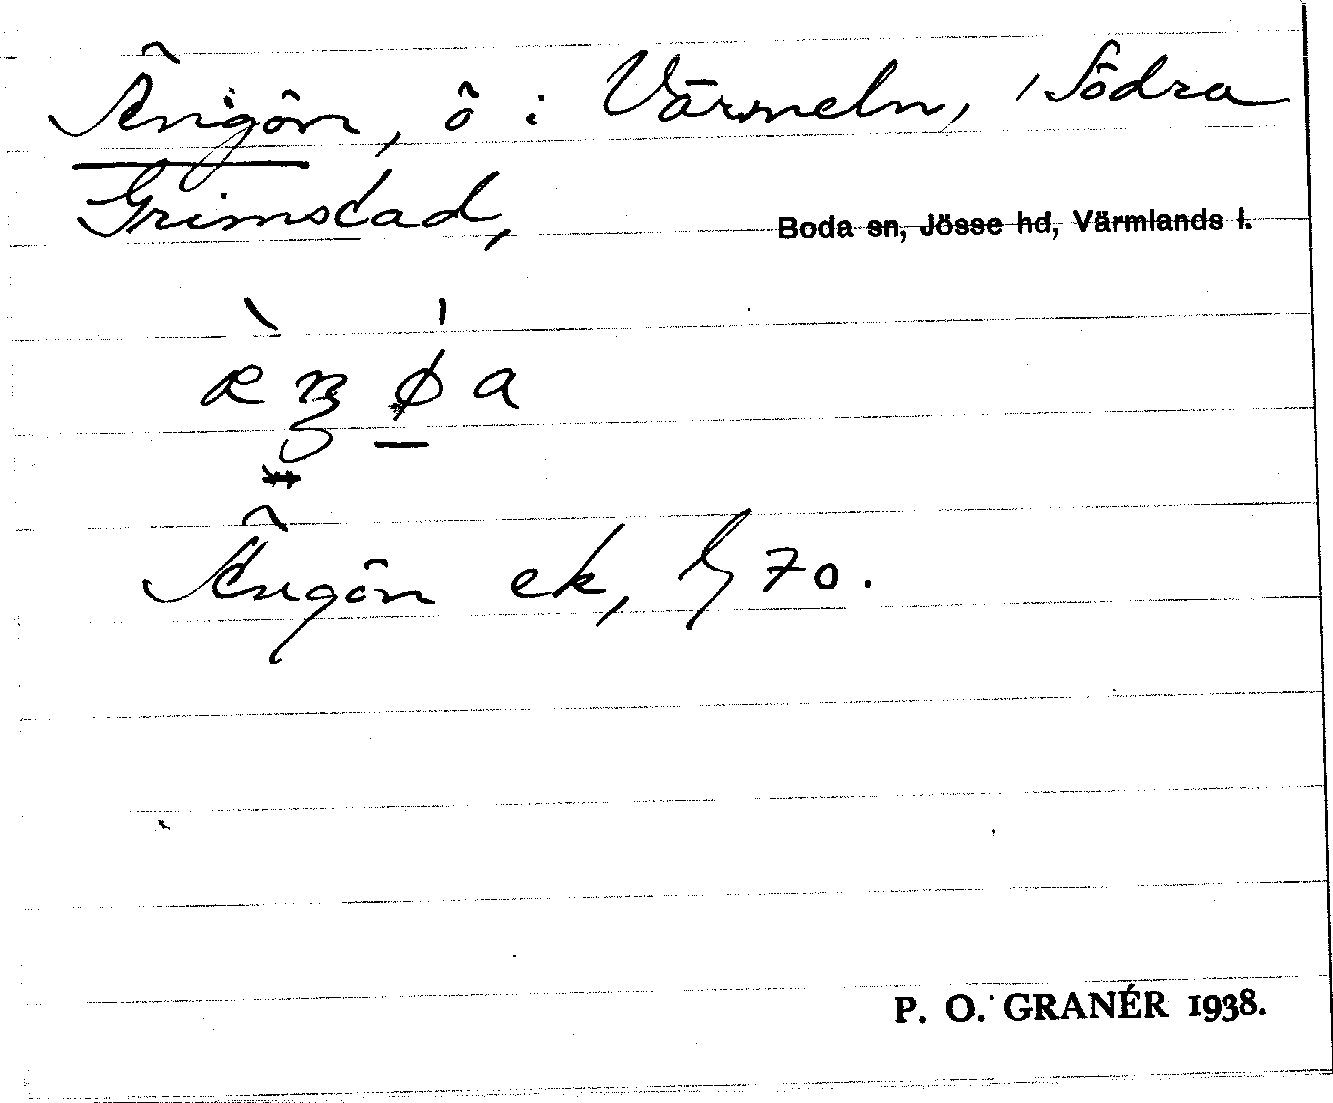 Ängön, ö i Värmeln, Södra
Grimstad,
Boda sn, Jösse hd, Värmlands l.
Ängön ek, 70.
P. O. GRANÉR 1938.